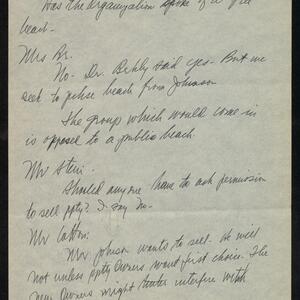 Was the organization spoke of a free
beach-
Mrs Br.
No- Dr. Behly said yes- But we
seek to pchse beach from Johnson
The group which would come in
is opposed to a public beach
Mr Stein.
Should anyone have to ask permission
to sell ppty? I say No-
Mr Cotton:
Mr. Johnson wants to sell- He will
not unless ppty Owners want first choice. The
new Owners might interfere with